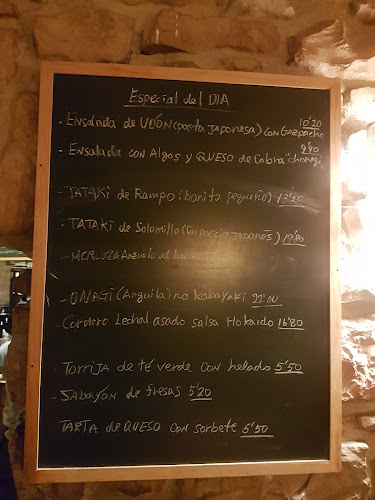 Especial del DIA
- Ensalada de UDON (pasta japonesa) con Gazpacho 10'20
- Ensalada con Algas y QUESO de Cabra 9'90
- TATAKI de Rampo (bonito pequeño)
- TATAKI de Solomillo (Carpaccio japonés)
- MERLUZA
- UNAGI (Anguila) no Kabayaki 22'00
- Cordero Lechal asado salsa Hokaido 16'80
- Torrija de té verde con helado 5'50
- SABAYON de fresas 5'20
TARTA de QUESO con sorbete 5'50